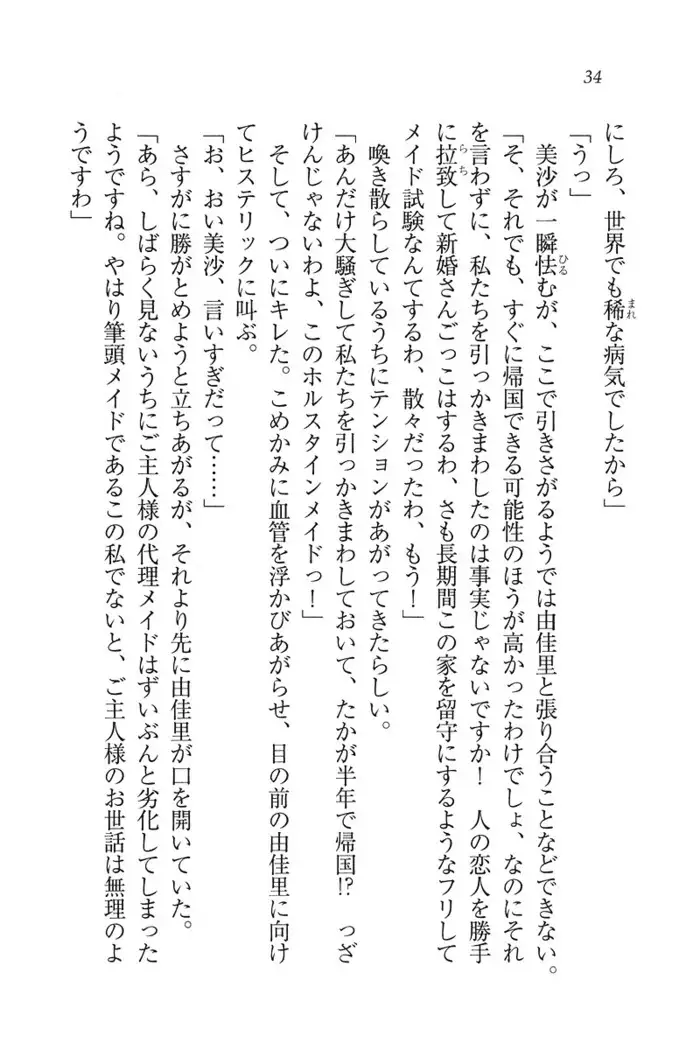 34
にしろ、世界でも稀な病気でしたから」
「うっ」
　美沙が一瞬怯むが、ここで引きさがるようでは由佳里と張り合うことなどできない。
「そ、それでも、すぐに帰国できる可能性のほうが高かったわけでしょ、なのにそれ
を言わずに、私たちを引っかきまわしたのは事実じゃないですか！　人の恋人を勝手
に拉致して新婚さんごっこはするわ、さも長期間この家を留守にするようなフリして
メイド試験なんてするわ、散々だったわ、もう！」
　喚き散らしているうちにテンションがあがってきたらしい。
「あんだけ大騒ぎして私たちを引っかきまわしておいて、たかが半年で帰国!?　っざ
けんじゃないわよ、このホルスタインメイドっ！」
　そして、ついにキレた。こめかみに血管を浮かびあがらせ、目の前の由佳里に向け
てヒステリックに叫ぶ。
「お、おい美沙、言いすぎだって……」
　さすがに勝がとめようと立ちあがるが、それより先に由佳里が口を開いていた。
「あら、しばらく見ないうちにご主人様の代理メイドはずいぶんと劣化してしまった
ようですね。やはり筆頭メイドであるこの私でないと、ご主人様のお世話は無理のよ
うですわ」